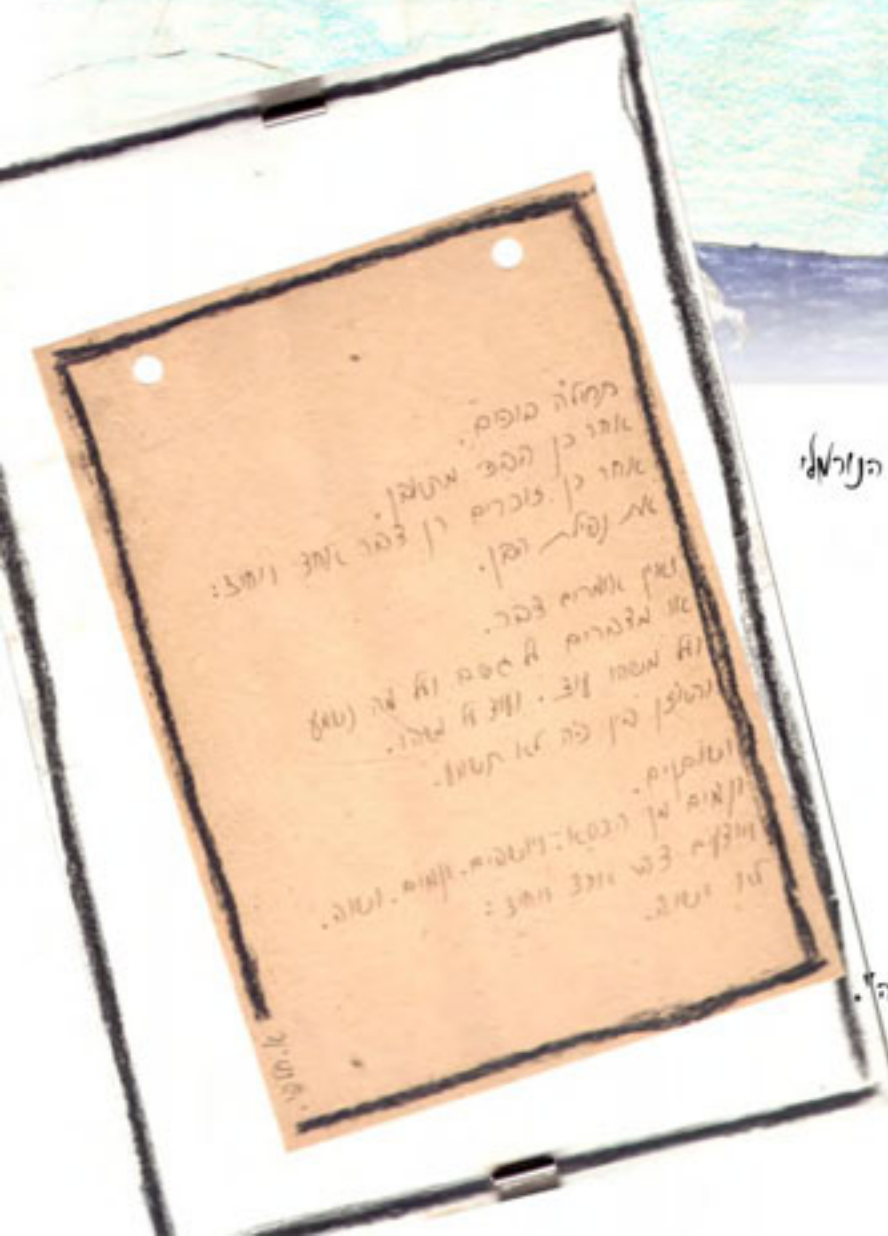 תחילה בוכים.
אחר כן הבכי מתאבן.
אחר כן זוכרים רק דבר אחד ויחיד:
את נפילת הבן.
ואין אומרים דבר.
או מדברים על גשם ועל מה נשמע
ועל משהו עוד. ועוד על משהו.
והאוזן בין כה לא תשמע.
ושותקים.
וקמים מן הכסא. ויושבים. וקמים. ושוב.
ויודעים דבר אחד ויחיד:
לא ישוב.
הנורמלי
ה".